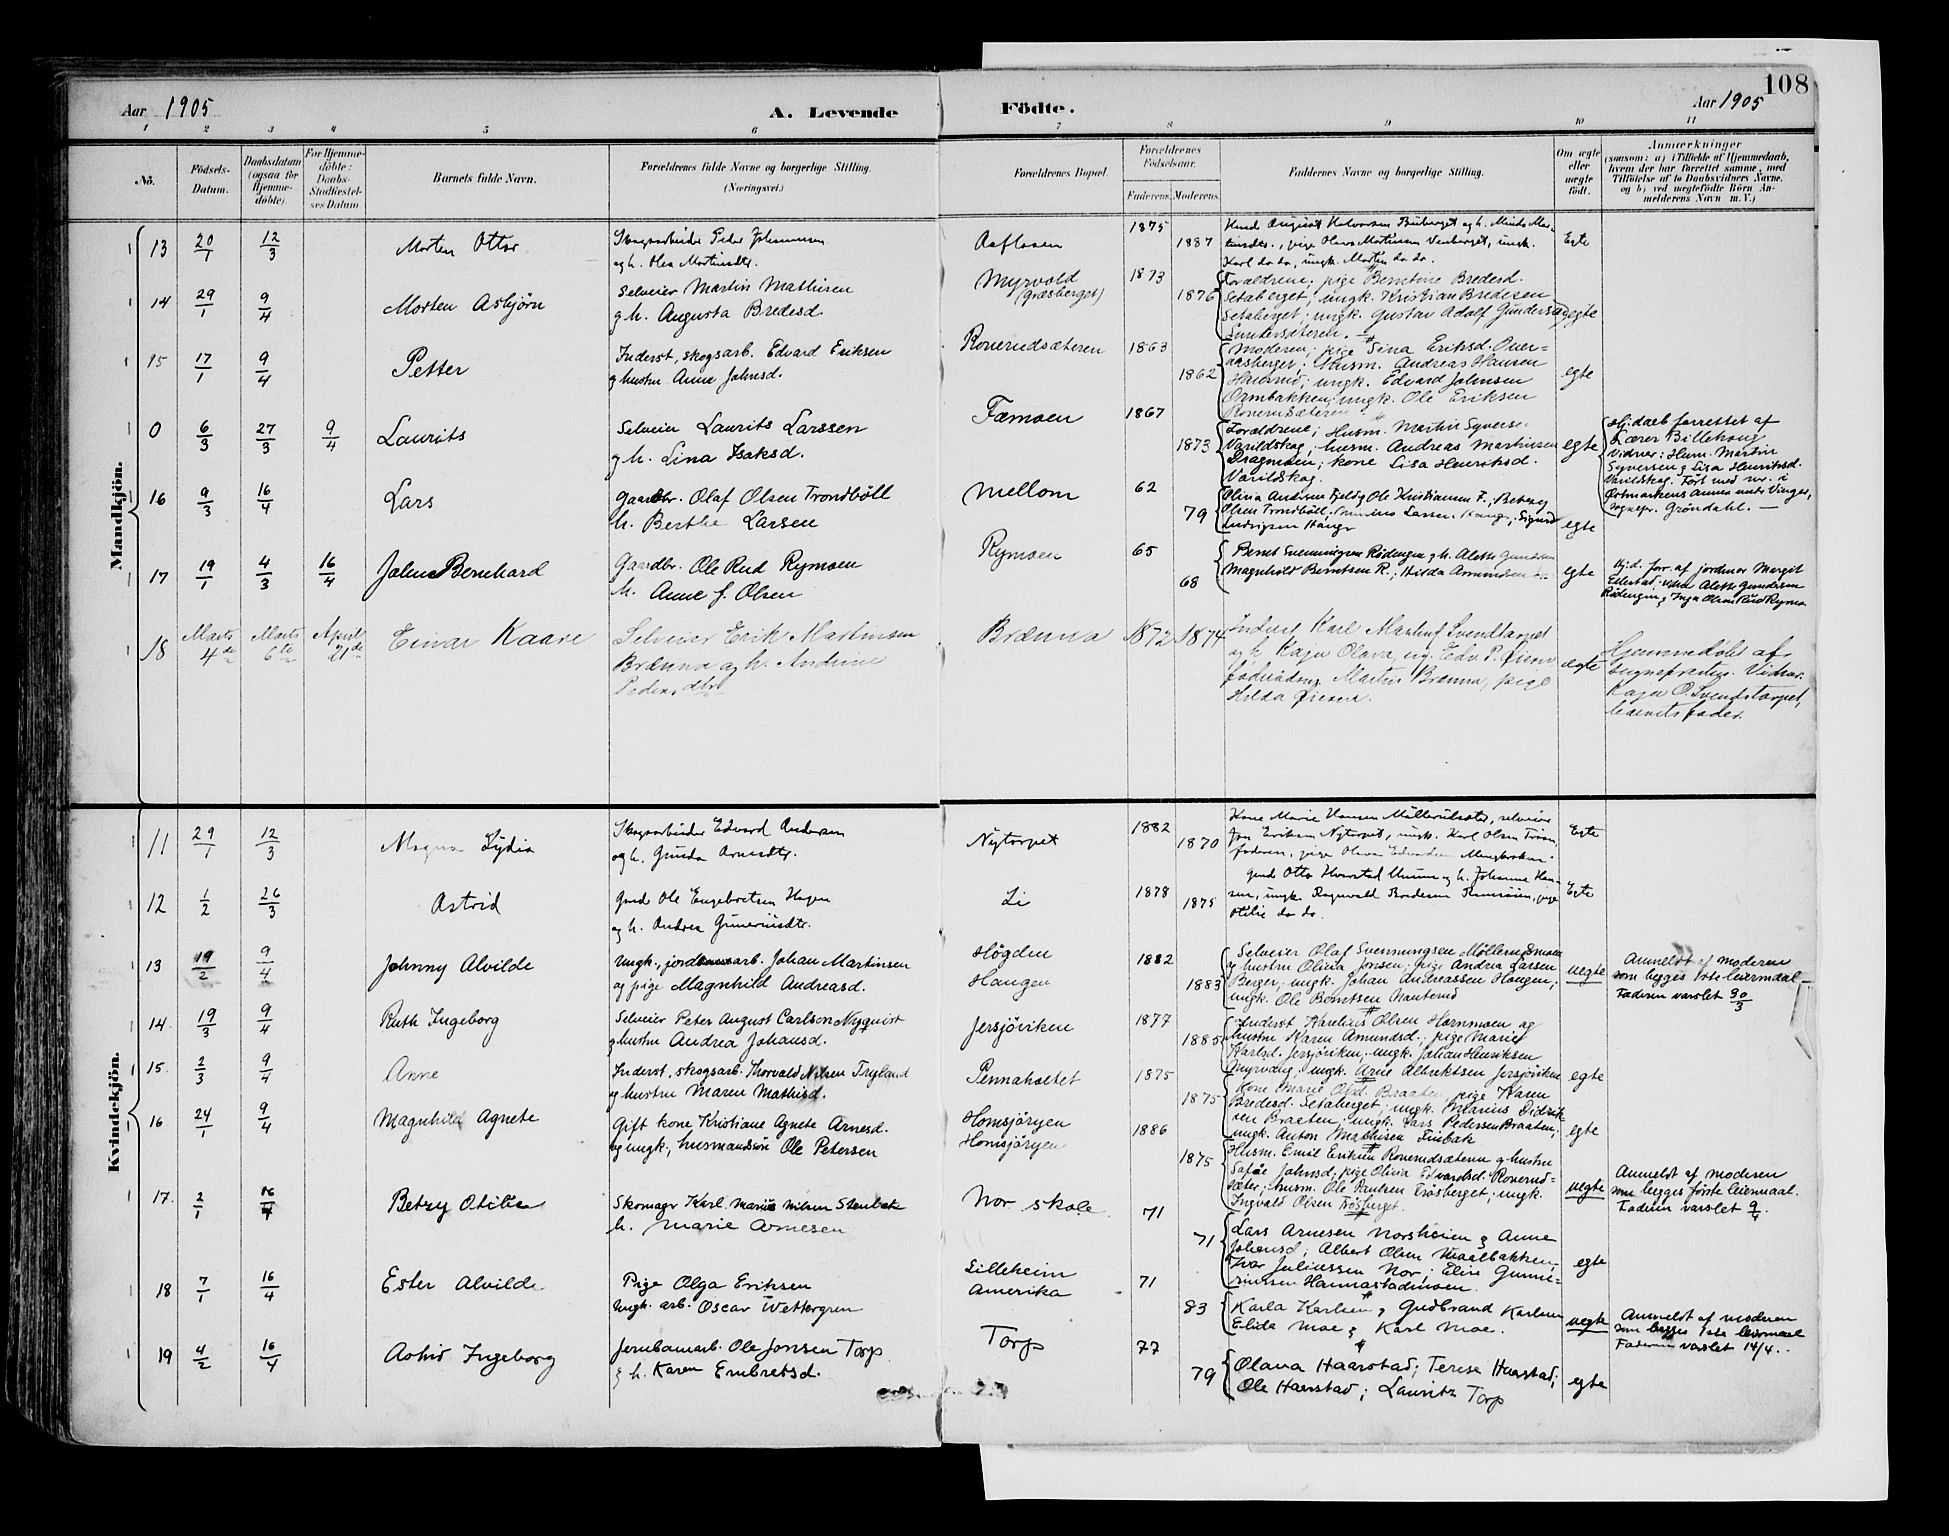 108
Aar 1905 A. Levende Födte. Aar 1905
1 2 3 4 5 6 7 8 9 10 11
Nö.
Födsels-Datum.
Daabsdatum (ogsaa for Hjemme-döbte).
For Hjemme-döbte: Daabs-Stadfæstel-ses Datum
Barnets fulde Navn.
Forældrenes fulde Navne og borgerlige Stilling. (Næringsvei.)
Forældrenes Bopæl.
Forældrenes Födselsaar.
Faderens. Moderens.
Faddernes Navne og borgerlige Stilling.
Om ægte eller uægte födt.
Anmærkninger
(saasom: a) i Tilfælde af Hjemmedaab,
hvem der har forrettet samme, med
Tilföielse af to Daabsvidners Navne.
og b) ved uægtefödte Börn An-
melderens Navn m. V.)
Mandkjön.
13 20/1 12/3 Morten Ottar
Skogsarbeider Peder Johannesen
og h. Olea Martinsdtr.
Aaflosen 1875 1887
Karl do do, ungk. Martin do do.
Egte
14 29/1 9/4 Morten Asbjörn
Selveier Martin Mathisen
g h. Augusta Bredesd.
Myrvold
(Græsberget)
1873 1876
Forældrene; pige Berntine Bredesd.
Setaberget; ungk. Kristian Bredesen
Setaberget; ungk. Gustav Adolf Gundersen
Lundersæteren.
egte
15 17/1 9/4 Petter
Inderst, skogsarb. Edvard Eriksen
g hustru Anne Johnsd.
Ronerudsæteren 1863 1862
Moderen; pige Sina Eriksd. Over-
aasberget; Husm. Andreas Hansen
ungk. Edvard Johnsen
Ormbakken; ungk. Ole Eriksen
Ronerudsæteren
egte
0 6/3 27/3 9/4 Laurits
Selveier Laurits Larssen
g h. Lina Isaksd.
Fæmoen 1867 1873
Forældrene; Husm. Martin Syversen
Varildskog; husm. Andreas Martinsen
Dragmoen; kone Lisa Henriksd.
Varildskog.
egte
Hj. daab forrettet af
Lærer Billehaug
Vidner: Husm. Martin
Syversen g Lisa Henriksd.
Varildskog. Fört med no. i
Östmarkens Annex under Vinger,
Sognepr. Gröndahl. —
16 9/3 16/4 Lars
Gaardbr. Olaf Olsen Trondböll
h. Berthe Larsen
Mellom 62 79
Olivia Andersen Fjeld g Ole Kristiansen F.; Betzey
Olsen Trondböll; Larsen Hauger; Sigurd
Ludvigsen Hauger
egte
17 19/1 4/3 16/4 Johns Bernhard
Gaardbr. Ole Rud Rymoen
h. Anne J. Olsen
Rymoen 65 68
Bernt Svenningsen Rödengen g h. Alette Gundersen
Magnhild Berntsen R.; Hilda Amundsen
egte
Hj. d. forr. af jordmor Margit
Ellestad; vidner Alette Gundersen
Rödengen g Inga Olsen Rud Rymoen
18 Marts 4de Marts 6te April 21de Einar Kaare
Selveier Erik Martinsen
Brænna og h. Andrine
Pedersdtr
Brænna 1872 1874
Indvet Karl Martinsen Svendtorpet
og h. Kaja Olava, ug. Edv. P. Öieren
föderaadsm. Martin Brænna, pige
Hilda Öieren.
egte
Hjemmedöbt af
sognepresten. Vidner:
Kaja O. Svendstorpet,
barnets fader.
Kvindekjön.
11 29/1 12/3 Magna Lydia
Skogsarbeider Edvard Andersen
og h. Gunda Arnesdtr.
Nytorpet 1882 1870
Kone Marie Hansen Möllerudsæter, selveier
Jon Eriksen Nytorpet, ungk. Karl Olsen
faderen, pige Olava Edvardsen
Egte
12 1/2 26/3 Astrid
Gaard Ole Engebretsen Hagen
og h. Andrea Gunerüsdtr.
Li 1878 1875
gaard Otto Huerstad Unum og h. Johanne Han-
sen, ungk. Ragnvald Bredesen pige
Otilie do do.
Egte
13 19/2 9/4 Johnny Alvilde
Ungk., jordarb. Johan Martinsen
og pige Magnhild Andreasd.
Högden
Haugen
1882 1883
Selveier Olaf Svenningsen Möllerudmoen
g hustru Olivia Jonsen; pige Andrea Larsen
Berger; ungk. Johan Andreassen Haugen;
ungk. Ole Berntsen Nauterud
uegte
Anmeldt af moderen
som begges 1ste leiermaal —
Faderen varslet 30/3
14. 19/3 9/4 Ruth Ingeborg
Selveier Peter August Carlson Nyquist
g hustru Andrea Johansd.
Jersjöviken 1877 1885
Inderst Karelius Olsen Hornmoen og
hustru Karen Amundsd.; pige Marie
Karlsd. Jersjöviken; ungk. Johan Henriksen
Myrvang; ungk. Arne Albretsen Jersjöviken
egte
15. 2/3 9/4 Anne
Inderst, skogsarb. Thorvald Nilsen Tryland
g hustru Maren Mathisd.
Pennaholtet 1875 1875
Kone Marie Olsd. Braaten; pige Karen
Bredesd. Setaberget; ungk. Marius Didrik-
sen Braaten; ungk. Lars Pedersen Braaten;
ungk. Anton Mathisen Finbak
egte
16 24/1 9/4 Magnhild Agnete
Gift kone, Kristiane Agnete Arnesd.
og ungk., husmandssön Ole Petersen
Homsjöryen
Homsjöryen
1886 1875
Husm. Emil Eriksen Ronerudsæteren g hustru
Sofie Johnsd; pige Olivia Edvardsd. Ronerud-
sæter; husm. Ole Paulsen Trösberget; ungk.
Ingvald Olsen Trösberget.
uegte
Anmeldt af moderen
som begges förste leiermaal.
Faderen varslet 9/4.
17. 2/1 16/4 Betzy Otilie
Skomagr Karl Marius Nilsen Stenbak
h. Marie Arnesen
Nor skole 71 71
Lars Arnesen Norsheien g Anne
Johansd; Albert Olsen Maalbakken,
Ivar Juliussen Nor; Elise Gunne-
riussen Hannastadmoen.
egte
18 7/1 16/4 Ester Alvilde
Pige Olga Eriksen
Ungk. arb. Oscar Wettergren
Lilleheim
Amerika
71 83
Karla Karlsen g Gudbrand Karlsen
Elida Moe g Karl Moe.
uegte
Anmeldt af moderen
som begges 1ste leiermaal
Faderen varslet 14/4.
19 4/2 16/4 Astrid Ingeborg
Jernbanearb. Ole Jonsen Torp
g h. Karen Embretsd.
Torp 77 79
Olava Haarstad; Terese Haarstad;
Ole Haarstad; Lauritz Torp
egte